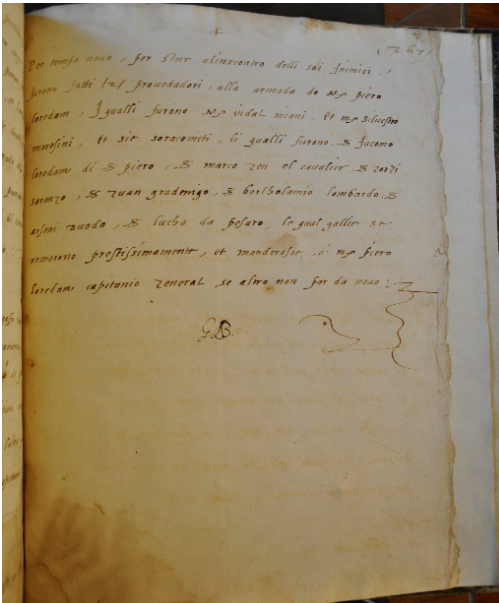 267
Per tempo novo, per star alinscontro delli soi Inimici,
furono fatti provedadori, alla armada de ms piero
loredam, I qualli furono ms vidal miani, Et ms silvestro
moresini, Et sie soracomiti, li qualli furono. S Jacomo
loredam di S piero, S marco zen el cavalier, S zorzi
soranzo, S zuan gradenigo, S bortholamio lombardo. S
arseni duodo, S lucha da pesaro, le qual gallie se
armorono prestissimamente, et mandorasse, a ms piero
loredam capitanio zeneral, se altro non por da novo: